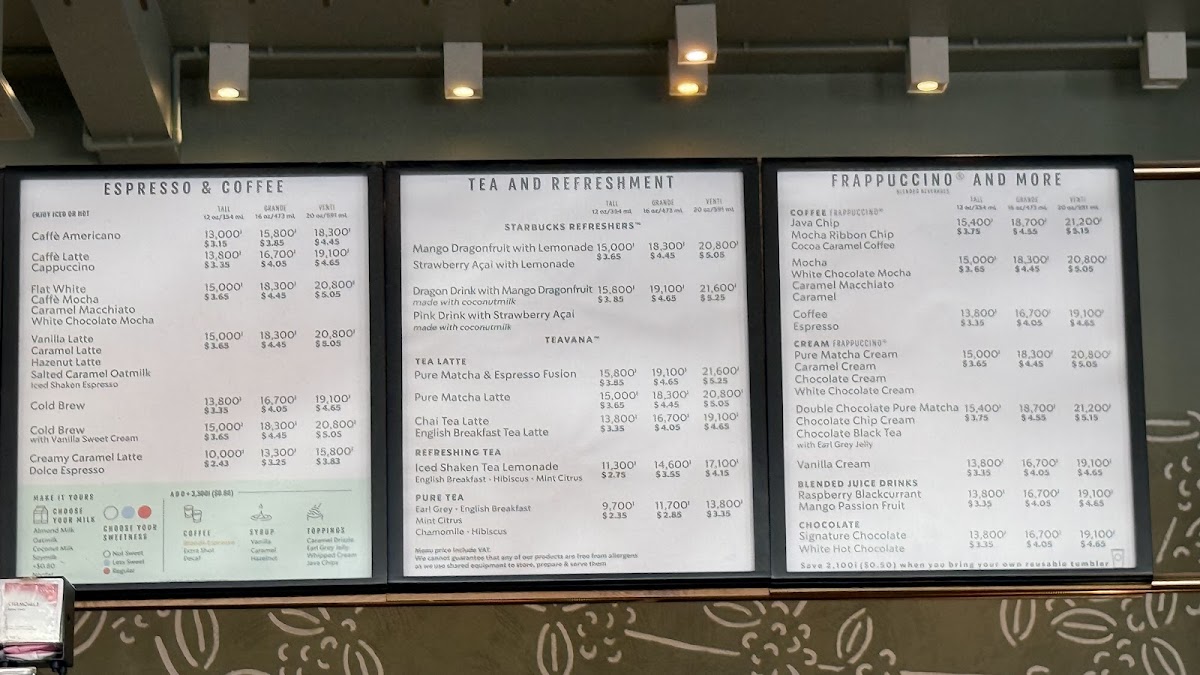 ESPRESSO & COFFEE
ENJOY ICED OR HOT
TALL GRANDE VENTI
12 oz/354 mL 16 oz/473 mL 20 oz/591 mL
Caffè Americano 13,000៛ 15,800៛ 18,300៛
$3.15 $3.85 $4.45
Caffè Latte 13,800៛ 16,700៛ 19,100៛
Cappuccino $3.35 $4.05 $4.65
Flat White 15,000៛ 18,300៛ 20,800៛
Caffè Mocha $3.65 $4.45 $5.05
Caramel Macchiato
White Chocolate Mocha
Vanilla Latte 15,000៛ 18,300៛ 20,800៛
Caramel Latte $3.65 $4.45 $5.05
Hazenut Latte
Salted Caramel Oatmilk
Iced Shaken Espresso
Cold Brew 13,800៛ 16,700៛ 19,100៛
$3.35 $4.05 $4.65
Cold Brew 15,000៛ 18,300៛ 20,800៛
with Vanilla Sweet Cream $3.65 $4.45 $5.05
Creamy Caramel Latte 10,000៛ 13,300៛ 15,800៛
Dolce Espresso $2.43 $3.25 $3.83
MAKE IT YOURS
CHOOSE YOUR MILK
Almond Milk
Oatmilk
Coconut Milk
Soymilk
+$0.80
CHOOSE YOUR SWEETNESS
Not Sweet
Less Sweet
Regular
ADD + 3,300៛ ($0.80)
COFFEE
Blonde Espresso
Extra Shot
Decaf
SYRUP
Vanilla
Caramel
Hazelnut
TOPPINGS
Caramel Drizzle
Earl Grey Jelly
Whipped Cream
Java Chips
TEA AND REFRESHMENT
TALL GRANDE VENTI
12 oz/354 mL 16 oz/473 mL 20 oz/591 mL
STARBUCKS REFRESHERS™
Mango Dragonfruit with Lemonade 15,000៛ 18,300៛ 20,800៛
$3.65 $4.45 $5.05
Strawberry Açai with Lemonade
Dragon Drink with Mango Dragonfruit 15,800៛ 19,100៛ 21,600៛
made with coconutmilk $3.85 $4.65 $5.25
Pink Drink with Strawberry Açai
made with coconutmilk
TEAVANA™
TEA LATTE
Pure Matcha & Espresso Fusion 15,800៛ 19,100៛ 21,600៛
$3.85 $4.65 $5.25
Pure Matcha Latte 15,000៛ 18,300៛ 20,800៛
$3.65 $4.45 $5.05
Chai Tea Latte 13,800៛ 16,700៛ 19,100៛
English Breakfast Tea Latte $3.35 $4.05 $4.65
REFRESHING TEA
Iced Shaken Tea Lemonade 11,300៛ 14,600៛ 17,100៛
English Breakfast - Hibiscus - Mint Citrus $2.75 $3.55 $4.15
PURE TEA
Earl Grey - English Breakfast 9,700៛ 11,700៛ 13,800៛
Mint Citrus $2.35 $2.85 $3.35
Chamomile - Hibiscus
Menu price include VAT.
We cannot guarantee that any of our products are free from allergens
as we use shared equipment to store, prepare & serve them
FRAPPUCCINO® AND MORE
BLENDED BEVERAGES
TALL GRANDE VENTI
12 oz/354 mL 16 oz/473 mL 20 oz/591 mL
COFFEE FRAPPUCCINO®
Java Chip 15,400៛ 18,700៛ 21,200៛
Mocha Ribbon Chip $3.75 $4.55 $5.15
Cocoa Caramel Coffee
Mocha 15,000៛ 18,300៛ 20,800៛
White Chocolate Mocha $3.65 $4.45 $5.05
Caramel Macchiato
Caramel
Coffee 13,800៛ 16,700៛ 19,100៛
Espresso $3.35 $4.05 $4.65
CREAM FRAPPUCCINO®
Pure Matcha Cream 15,000៛ 18,300៛ 20,800៛
Caramel Cream $3.65 $4.45 $5.05
Chocolate Cream
White Chocolate Cream
Double Chocolate Pure Matcha 15,400៛ 18,700៛ 21,200៛
Chocolate Chip Cream $3.75 $4.55 $5.15
Chocolate Black Tea
with Earl Grey Jelly
Vanilla Cream 13,800៛ 16,700៛ 19,100៛
$3.35 $4.05 $4.65
BLENDED JUICE DRINKS
Raspberry Blackcurrant 13,800៛ 16,700៛ 19,100៛
Mango Passion Fruit $3.35 $4.05 $4.65
CHOCOLATE
Signature Chocolate 13,800៛ 16,700៛ 19,100៛
White Hot Chocolate $3.35 $4.05 $4.65
Save 2,100៛ ($0.50) when you bring your own reusable tumbler